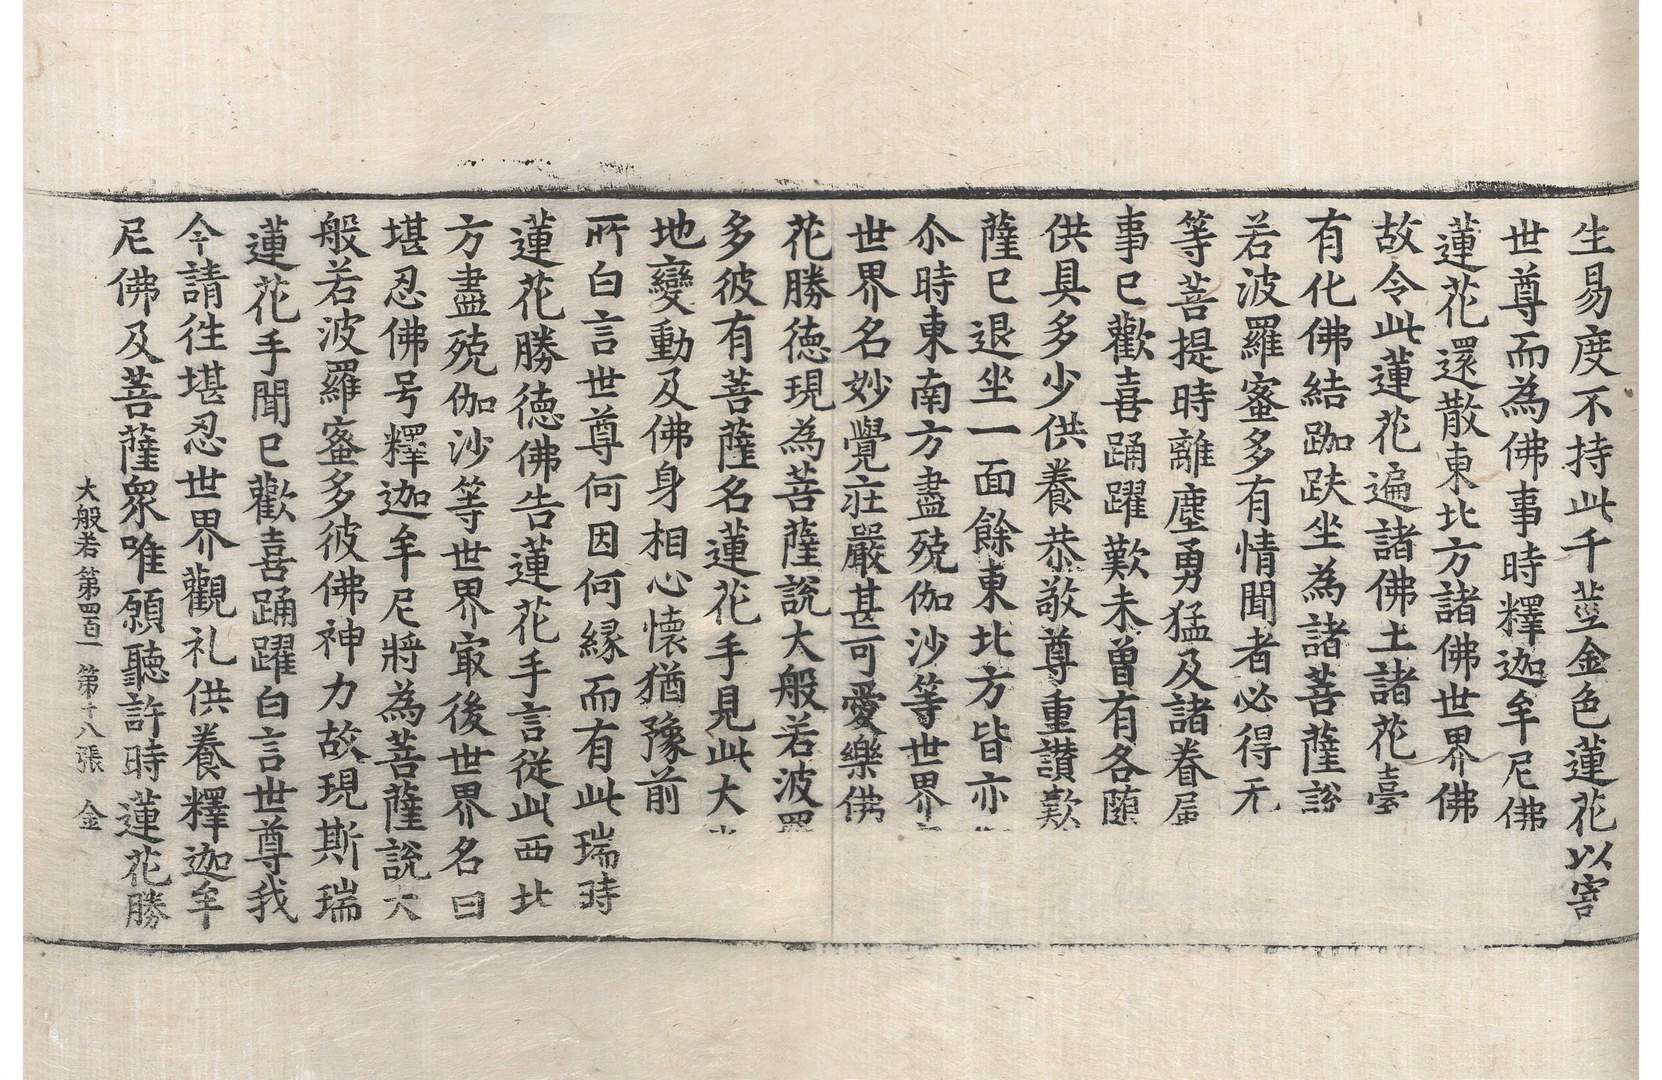 生易度不持此千莖金色蓮花以寄
世尊而為佛事時釋迦牟尼佛
蓮花還散東北方諸佛世界佛
故令此蓮花遍諸佛土諸花臺
有化佛結跏趺坐為諸菩薩說
若波羅蜜多有情聞者必得无
等菩提時離塵勇猛及諸眷属
事已歡喜踊躍歎未曽有各随
供具多少供養恭敬尊重讃歎
薩已退坐一面餘東北方皆亦
尒時東南方盡殑伽沙等世界
世界名妙覺庄嚴甚可愛樂佛
花勝徳現為菩薩說大般若波羅
多彼有菩薩名蓮花手見此大
地變動及佛身相心懷猶豫前
所白言世尊何因何縁而有此瑞時
蓮花勝徳佛告蓮花手言従此西北
方盡殑伽沙等世界㝡後世界名曰
堪忍佛号釋迦牟尼將為菩薩說大
般若波羅蜜多彼佛神力故現斯瑞
蓮花手聞已歡喜踊躍白言世尊我
今請往堪忍世界觀礼供養釋迦牟
尼佛及菩薩衆唯願聽許時蓮花勝
大般若第四百一 第十八張 金